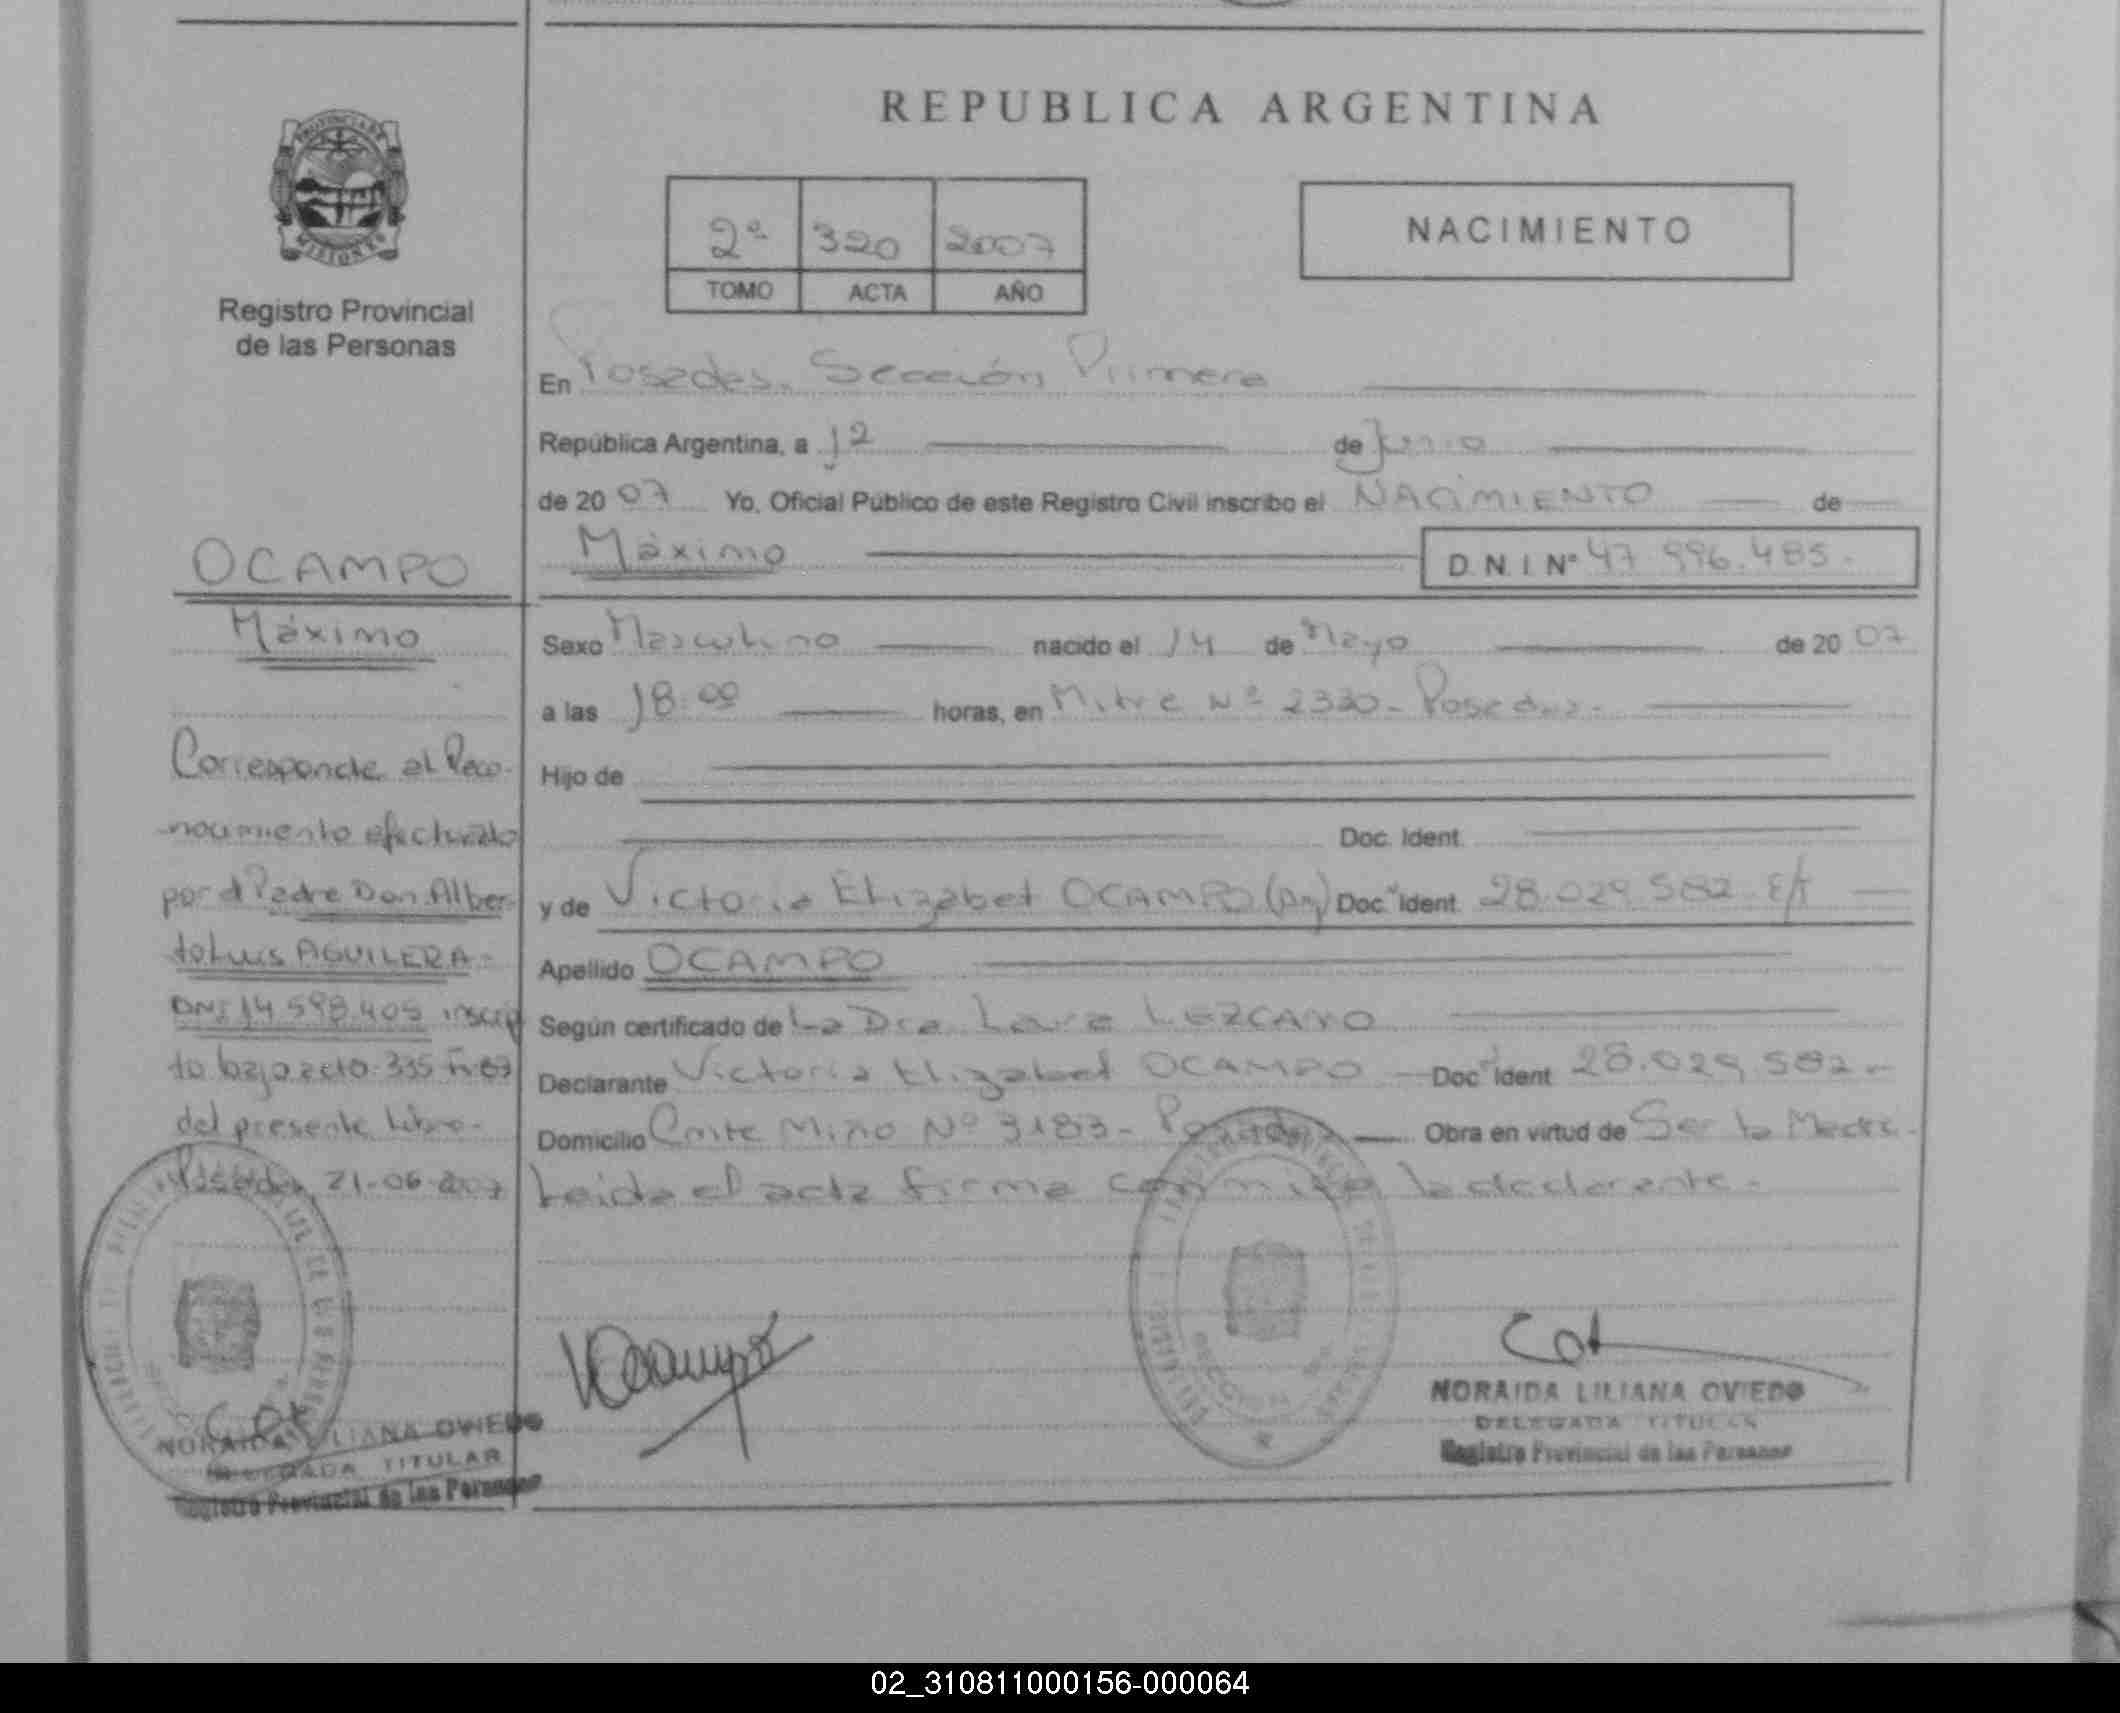 REPUBLICA ARGENTINA
PROVINCIA DE
MISIONES
Registro Provincial
de las Personas
2ª 320 2007
TOMO ACTA AÑO
NACIMIENTO
En Posadas. Sección Primera
República Argentina, a 12 de Junio
de 20 07 Yo, Oficial Público de este Registro Civil inscribo el NACIMIENTO de
Máximo D.N.I Nº 47.996.485.
Sexo Masculino nacido el 14 de Mayo de 20 07
a las 18:00 horas, en Mitre Nº 2330 - Posadas.
Hijo de
Doc. Ident.
y de Victoria Elizabet OCAMPO (Arg) Doc. Ident. 28.029.582 E/T
Apellido OCAMPO
Según certificado de La Dra. Laura LEZCANO
Declarante Victoria Elizabet OCAMPO Doc. Ident 28.029.582.-
Domicilio Cmte Miño Nº 3183 - Posadas Obra en virtud de Ser la Madre.
Leida el acta firma conmigo la declarante.
OCAMPO
Máximo
Corresponde al Reco-
nocimiento efectuado
por el Padre Don Alber-
to Luis AGUILERA -
DNI 14.598.405 inscrip
to bajo acta 335
del presente Libro.
Posadas, 21-06-2007
VOcampo
NORAIDA LILIANA OVIEDO
DELEGADA TITULAR
Registro Provincial de las Personas
NORAIDA LILIANA OVIEDO
DELEGADA TITULAR
Registro Provincial de las Personas
02_310811000156-000064